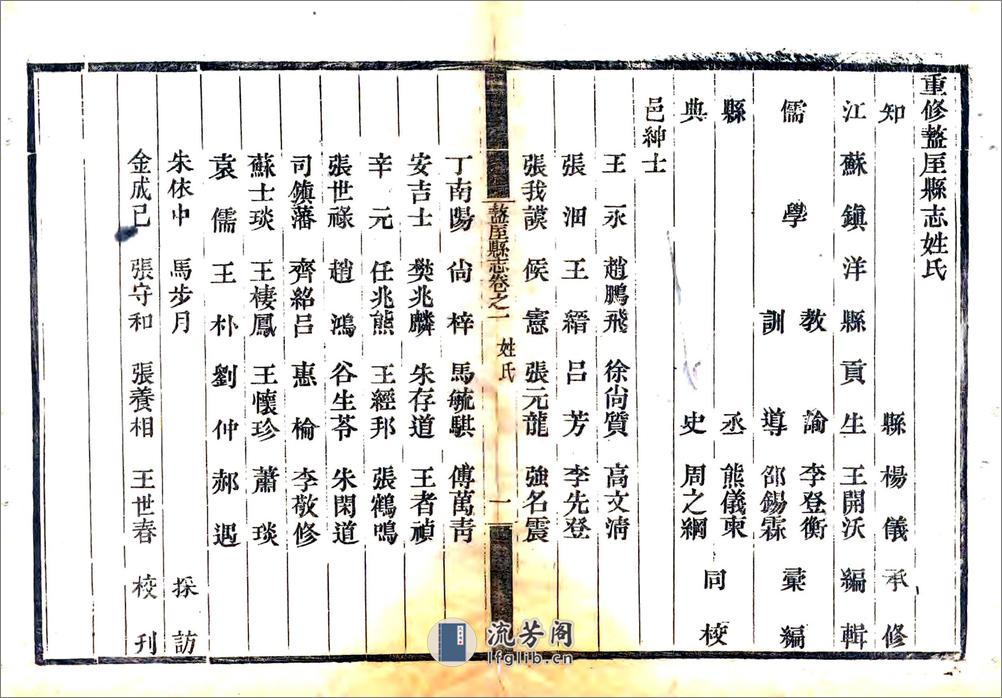 重修盩厔縣志姓氏
知縣楊儀承修
江蘇鎮洋縣貢生王開沃編輯
儒學教諭李登衡
訓導邵錫霖
彚編
縣丞熊儀柬
典史周之綱
同校
邑紳士
王永 趙鵬飛 徐尙質 高文淸
張洄 王縉 呂芳 李先登
張我謨 侯憲 張元龍 強名震
盩厔縣志卷之一 姓氏 一
丁南陽 尙梓 馬毓騏 傅萬靑
安吉士 樊兆麟 朱存道 王者禎
辛元 任兆熊 王經邦 張鶴鳴
張世祿 趙鴻 谷生苓 朱閑道
司鎮藩 齊紹呂 惠棆 李敬修
蘇士琰 王棲鳳 王懷珍 蕭琰
袁儒 王朴 劉仲 郝遇
朱依中 馬步月 採訪
金成已 張守和 張養相 王世春 校刊
流芳阁
lfglib.cn